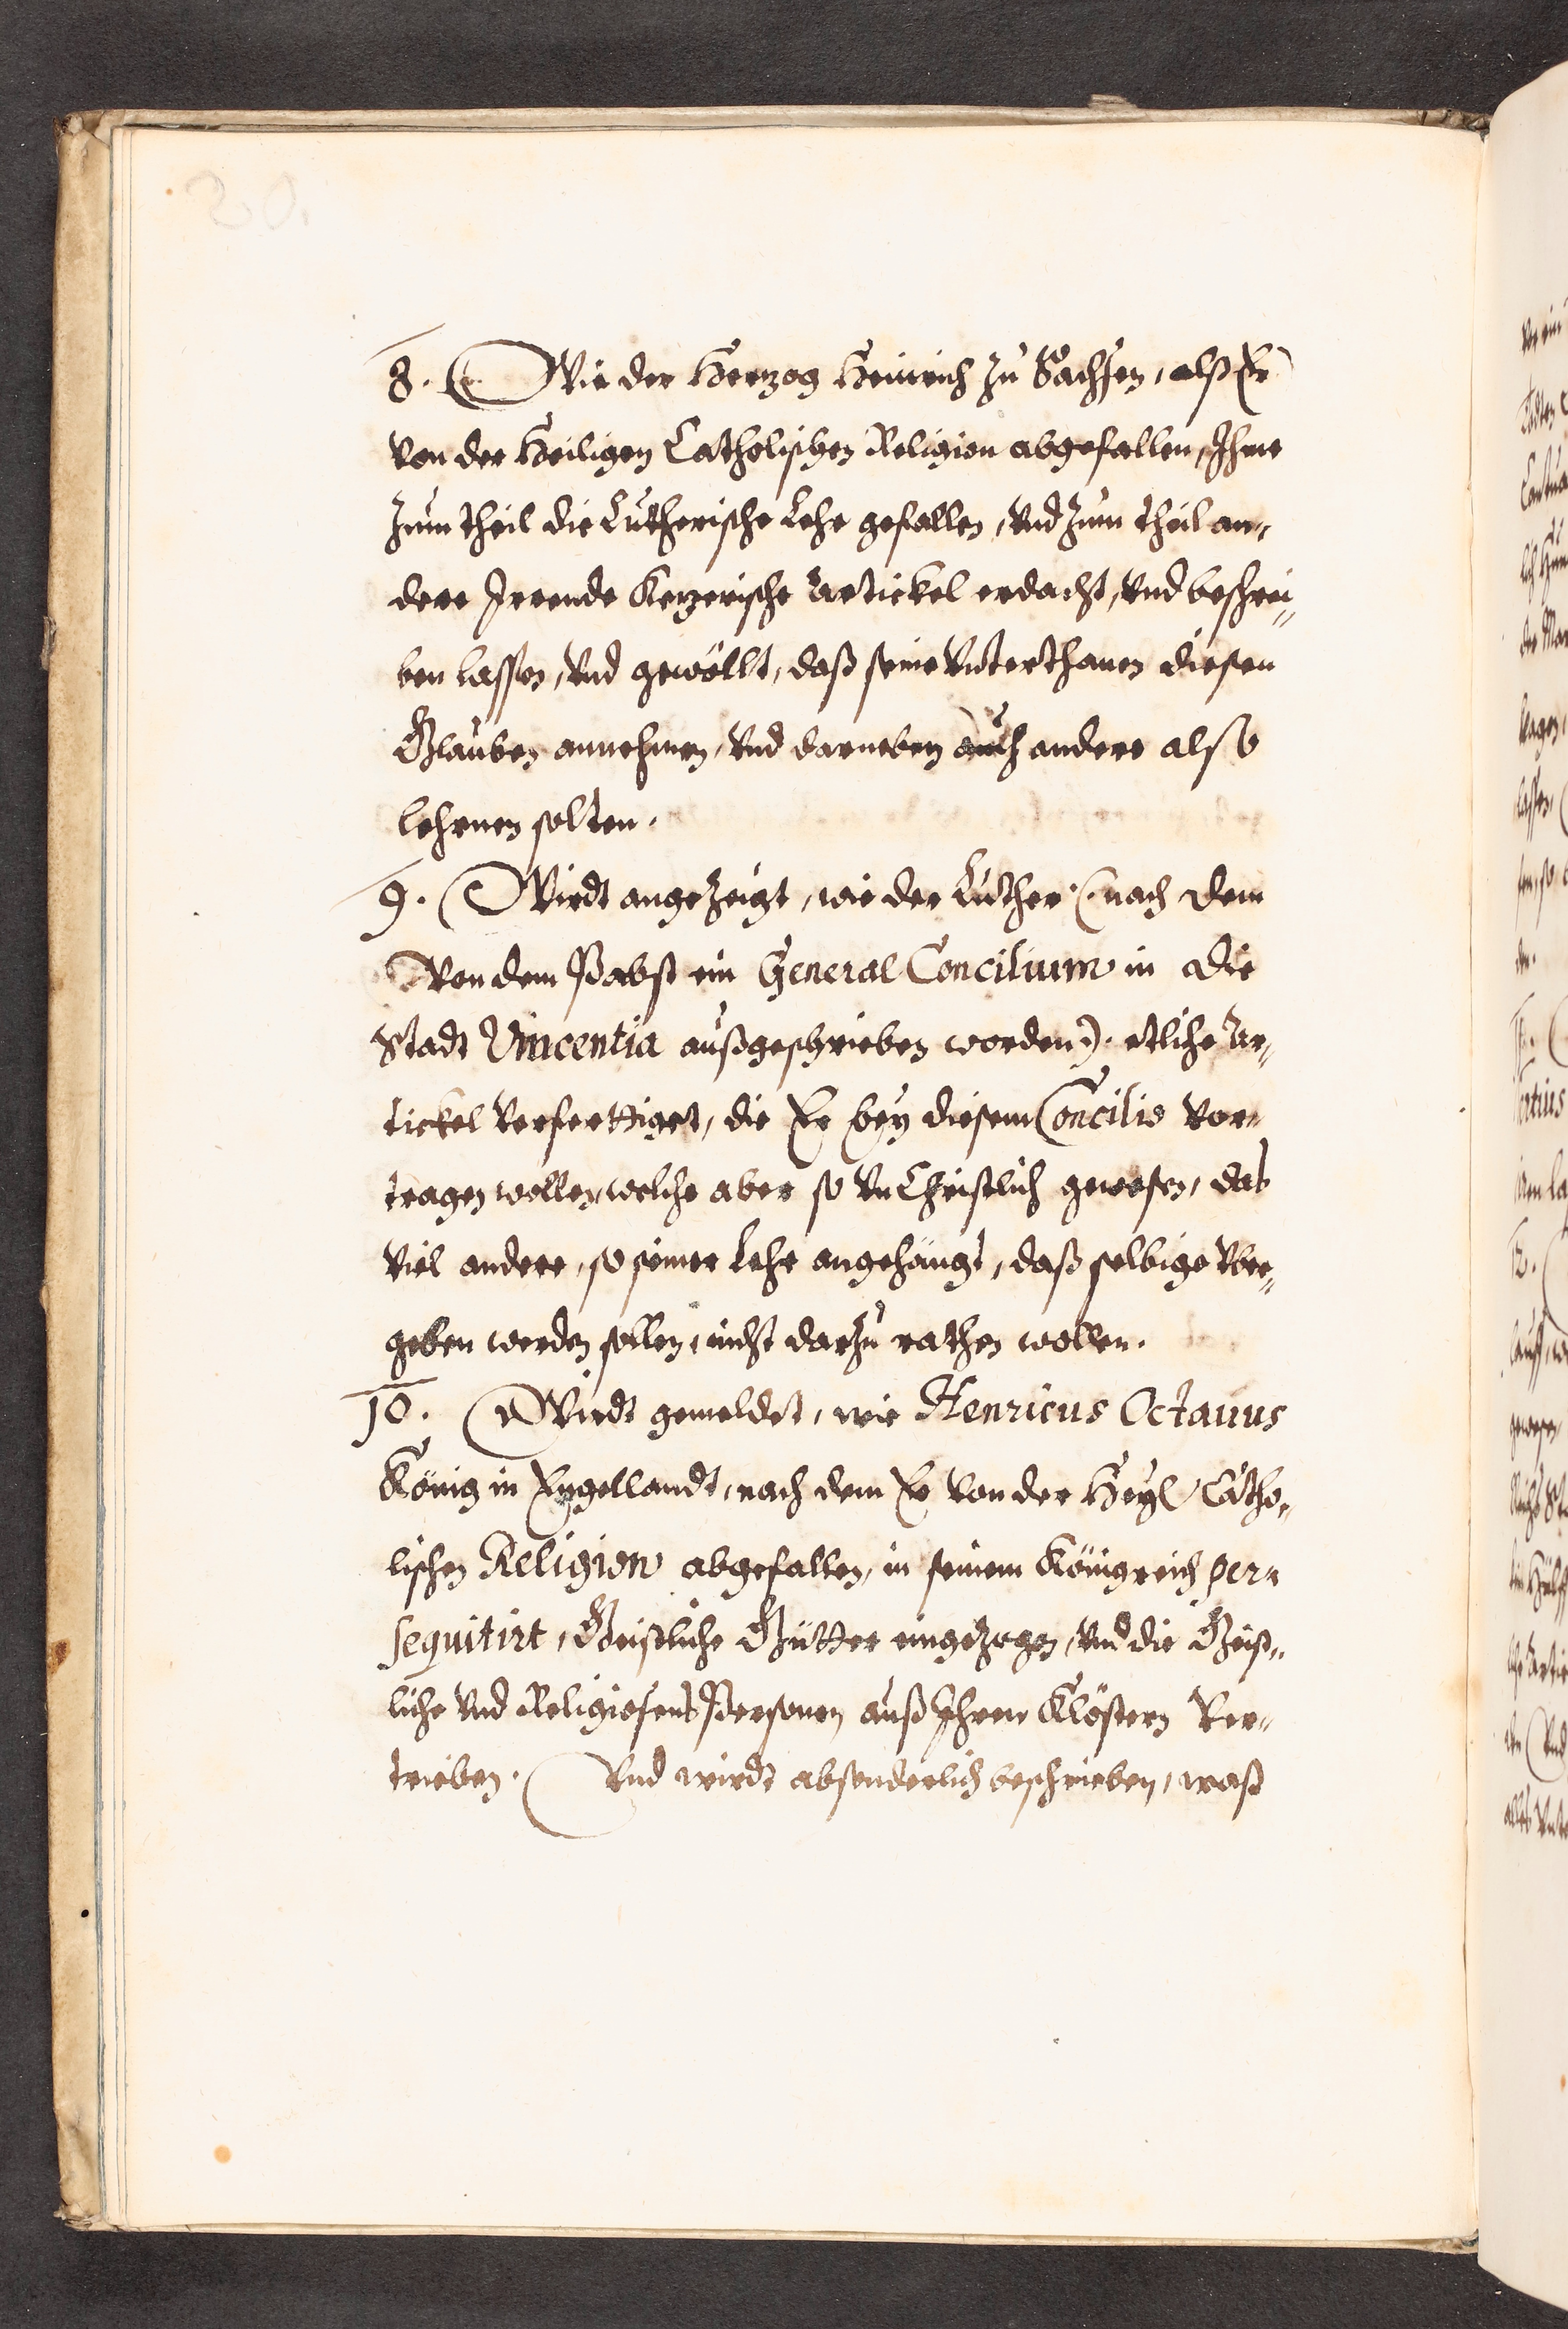 20.
8. Wie der Hertzog Heinrich zu Sachsen, alß Er
von der Heiligen Catholischen Religion abgefallen, Ihme
zum theil die Lutherische Lehr gefallen, vnd zum theil an„
dere Irrende Ketzerische Artickel erdacht, vnd beschrei„
ben lassen, vnd gewöllt, daß seine Vnterthanen diesen
Glauben annehmen, vnd darneben auch andere also
lehrnen solten.
9. Wirdt angezeigt, wie der Luther (nach dem
von dem Pabst ein General Concilium in die
Stadt Vincentia außgeschrieben worden). etliche Ar„
tickel verferttiget, die Er bey diesem Concilio vor„
tragen wollen, welche aber so vnChristlich gewesen, das
viel andere, so seiner Lehr angehängt, daß selbige vber„
geben werden sollen, nicht darzu rathen wollen.
10. Wirdt gemeldet, wie Henricus Octauus
König in Engellandt, nach dem Er von der Heyl. Catho„
lischen Religion abgefallen, in seinem Königreich per„
sequitirt, Geistliche Gütter eingezogen, vnd die Geist„
liche vnd Religiosens Personen auß Ihren Klöstern ver„
trieben. Vnd wirdt absonderlich beschrieben, waß